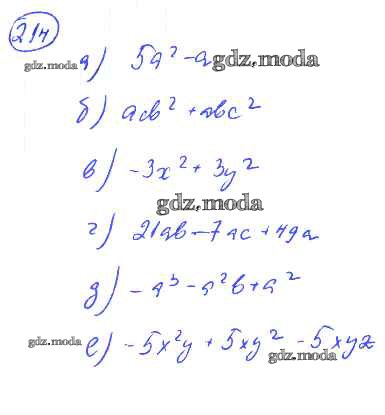 214
gdz.moda а) 5a² - a gdz.moda
б) acb² + abc²
в) -3x² + 3y²
gdz.moda
г) 21ab - 7ac + 49a
д) -a³ - a²b + a²
gdz.moda е) -5x²y + 5xy² - 5xyz
gdz.moda